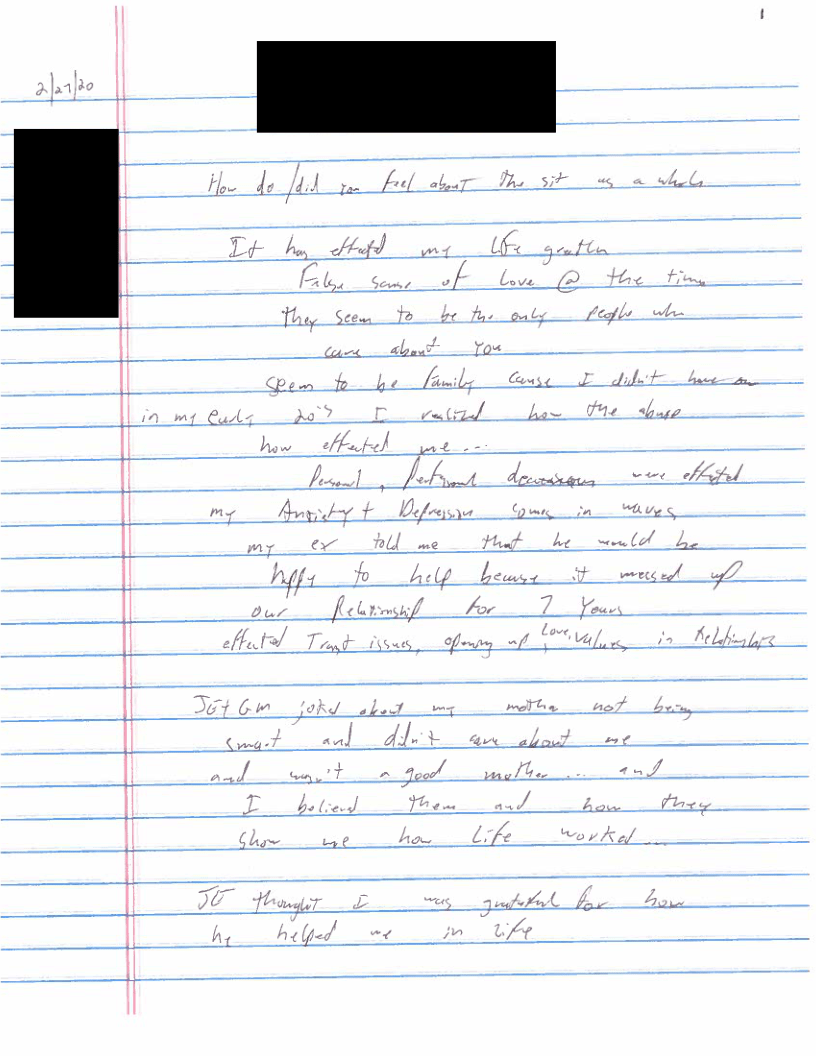 1
2/27/20
How do/did you feel about the sit as a whole
It has effected my Life greatly
False sense of Love @ the time
they seem to be the only people who
care about You
Seem to be family cause I didn't have one
in my early 20's I realized how the abuse
how effected me...
Personal, Professional decisions were effected
my Anxiety + Depression comes in waves
my ex told me that he would be
happy to help because it messed up
our Relationship for 7 Years
effected Trust issues, opening up, Love, values in Relationships
JE + GM joked about my mother not being
smart and didn't care about me
and wasn't a good mother... and
I believed them and how they
show me how Life worked...
JE thought I was grateful for how
he helped me in life